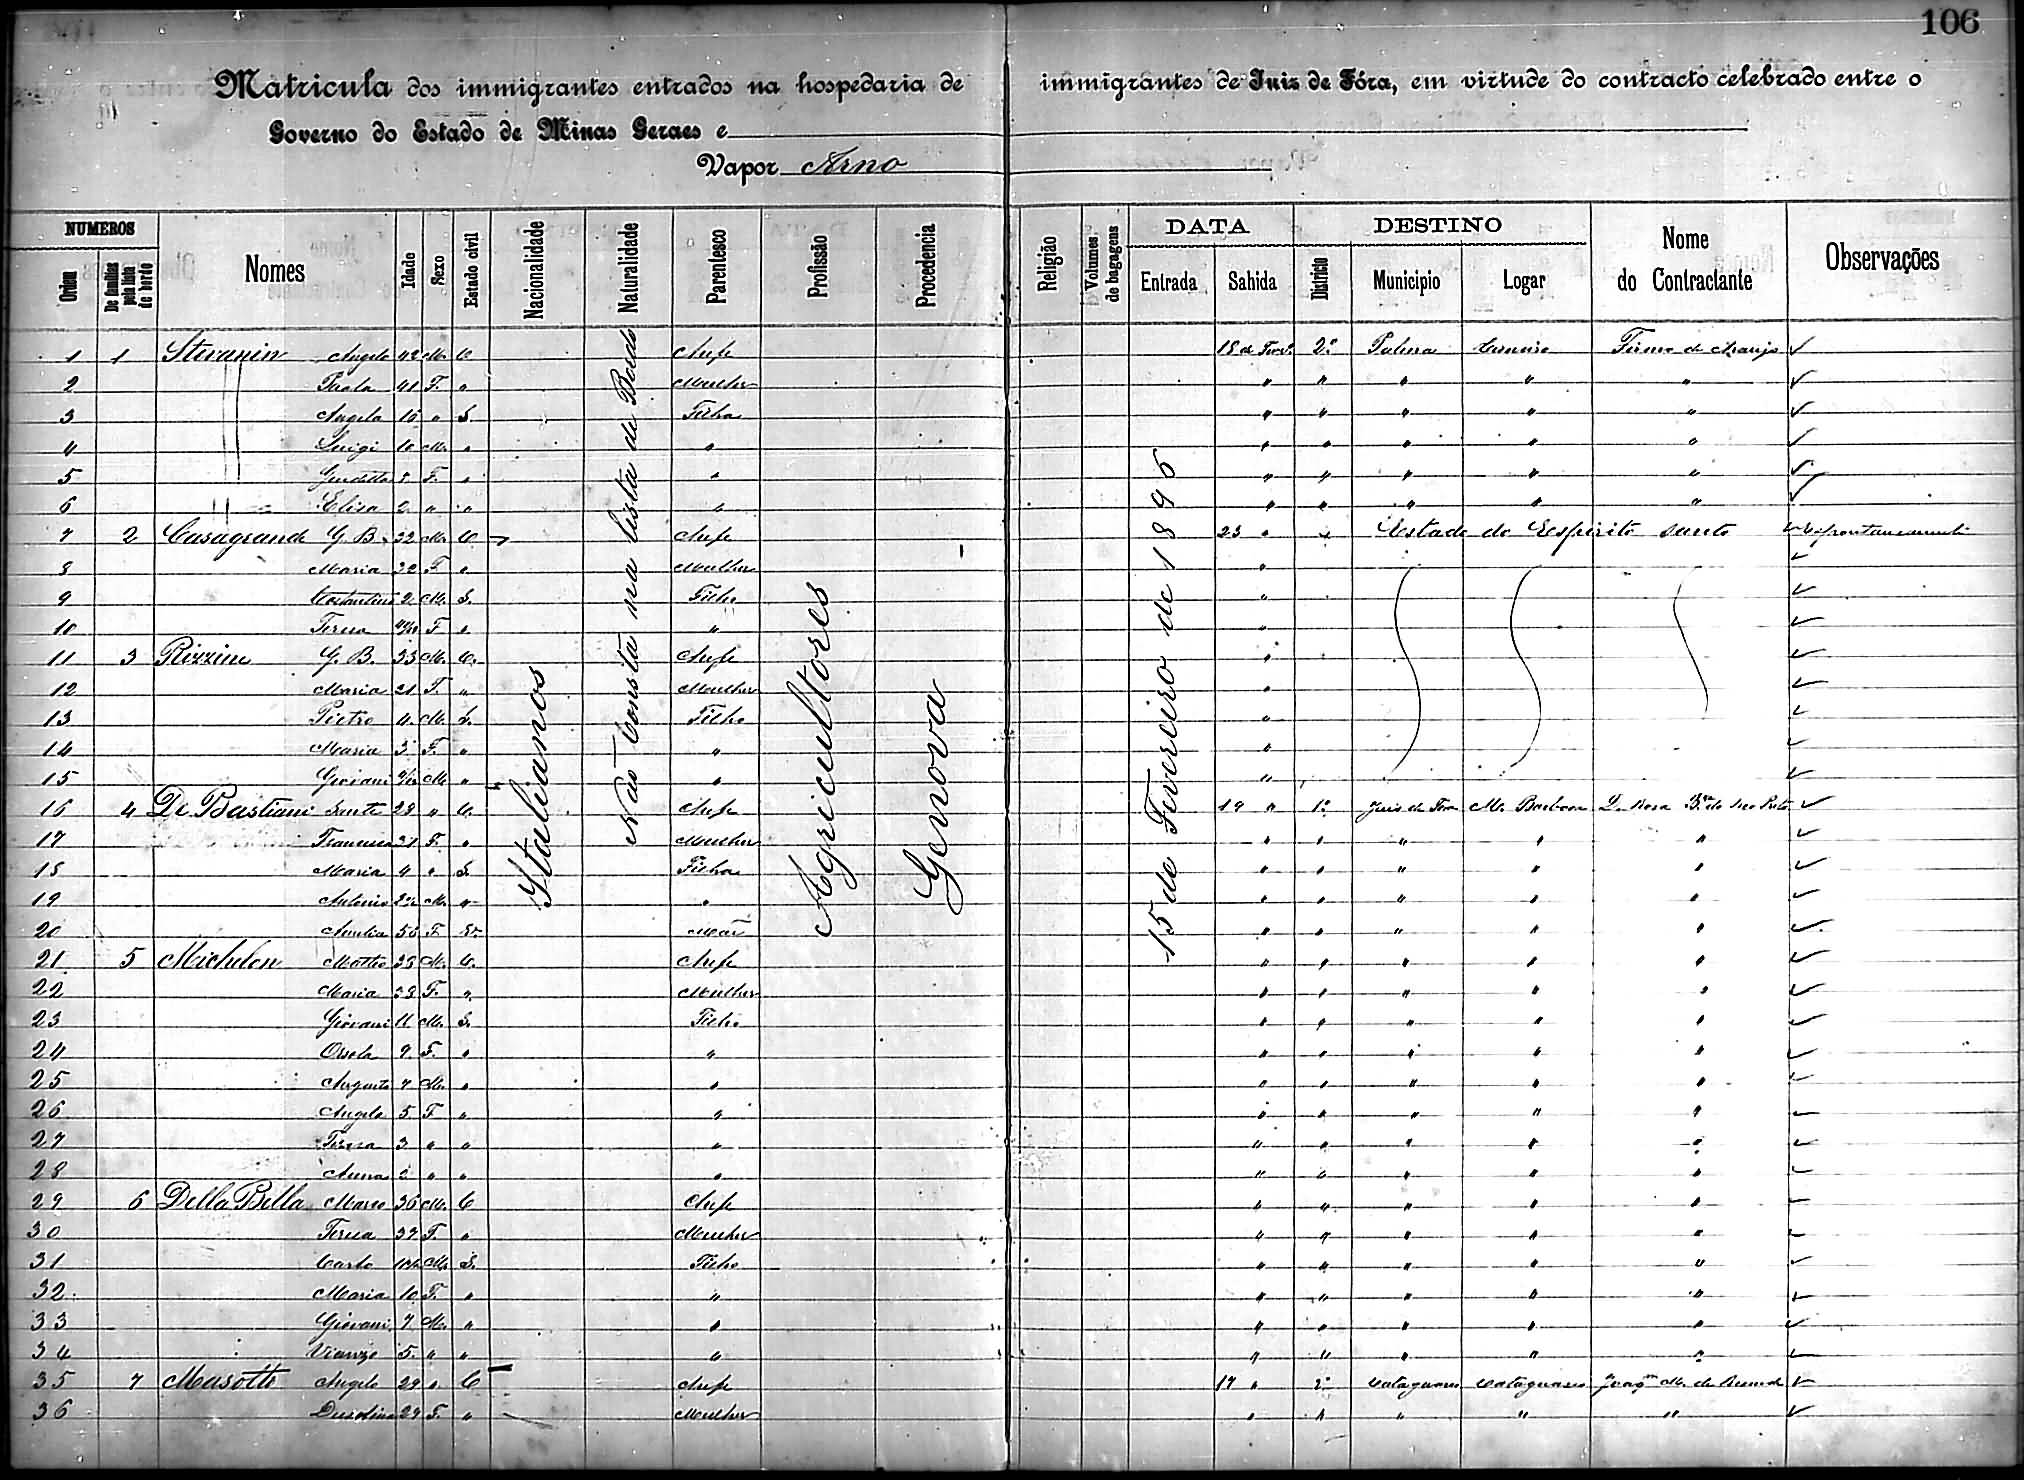 106
Matricula dos immigrantes entrados na hospedaria de immigrantes de Juiz de Fóra, em virtude do contracto celebrado entre o
Governo do Estado de Minas Geraes e
Vapor Arno
NUMEROS DATA DESTINO
Ordem De familias pela lista de bordo Nomes Idade Sexo Estado civil Nacionalidade Naturalidade Parentesco Profissão Procedencia Religião Volumes de bagagens Entrada Sahida Districto Municipio Logar Nome do Contractante Observações
Italianos
Não consta na lista de Bordo
Agricultores
Genova
15 de Fevereiro de 1896
1 1 Stevanin Angelo 42 M. C Chefe 18 de Fevº 2º Palma Firmo de Araujo ✓
2 Paola 41 F. " Mulher " " " " " ✓
3 Angela 16 " S. Filha " " " " " ✓
4 Luigi 10 M. " " " " " " " ✓
5 F. " " " " " " " ✓
6 Elisa 2 " " " " " " " " ✓
7 2 Casagrande G. B. 32 M. C Chefe 23 " Estado do Espirito Santo ✓ Espontaneamente
8 Maria 32 F " Mulher " ✓
9 2 M. S. Filho " ✓
10 Teresa F " " " ✓
11 3 Rizzini G. B. 33 M. C. Chefe " ✓
12 Maria 21 F. " Mulher " ✓
13 Pietro 4 M. S. Filho " ✓
14 Maria 3 F. " " " ✓
15 Giovani M " " " ✓
16 4 De Bastiani Sante 28 " C. Chefe 19 " 1º Juiz de Fora M. Barbosa ✓
17 Francisca F. " Mulher " " " " " ✓
18 Maria 4 " S. Filha " " " " " ✓
19 Antonio M. " " " " " " " ✓
20 F. Mãe " " " " " ✓
21 5 Michelon Matteo M. C. Chefe " " " " " ✓
22 Maria F. " Mulher " " " " " ✓
23 Giovani 11 M. S. Filho " " " " " ✓
24 Orsola 9 F. " " " " " " " ✓
25 Augusto 7 M. " " " " " " " ✓
26 Angela 5 F " " " " " " " ✓
27 Teresa 3 " " " " " " " " ✓
28 Anna 2 " " " " " " " " ✓
29 6 Della Bella Marco 36 M. C Chefe " " " " " ✓
30 Teresa 37 F. " Mulher " " " " " ✓
31 Carlo M. S. Filho " " " " " ✓
32 Maria 10 F. " " " " " " " ✓
33 Giovani 7 M. " " " " " " " ✓
34 5 " " " " " " " " ✓
35 7 Masotto Angelo 29 " C Chefe 17 " 2º Cataguases Cataguases ✓
36 29 F. " Mulher " " " " " ✓